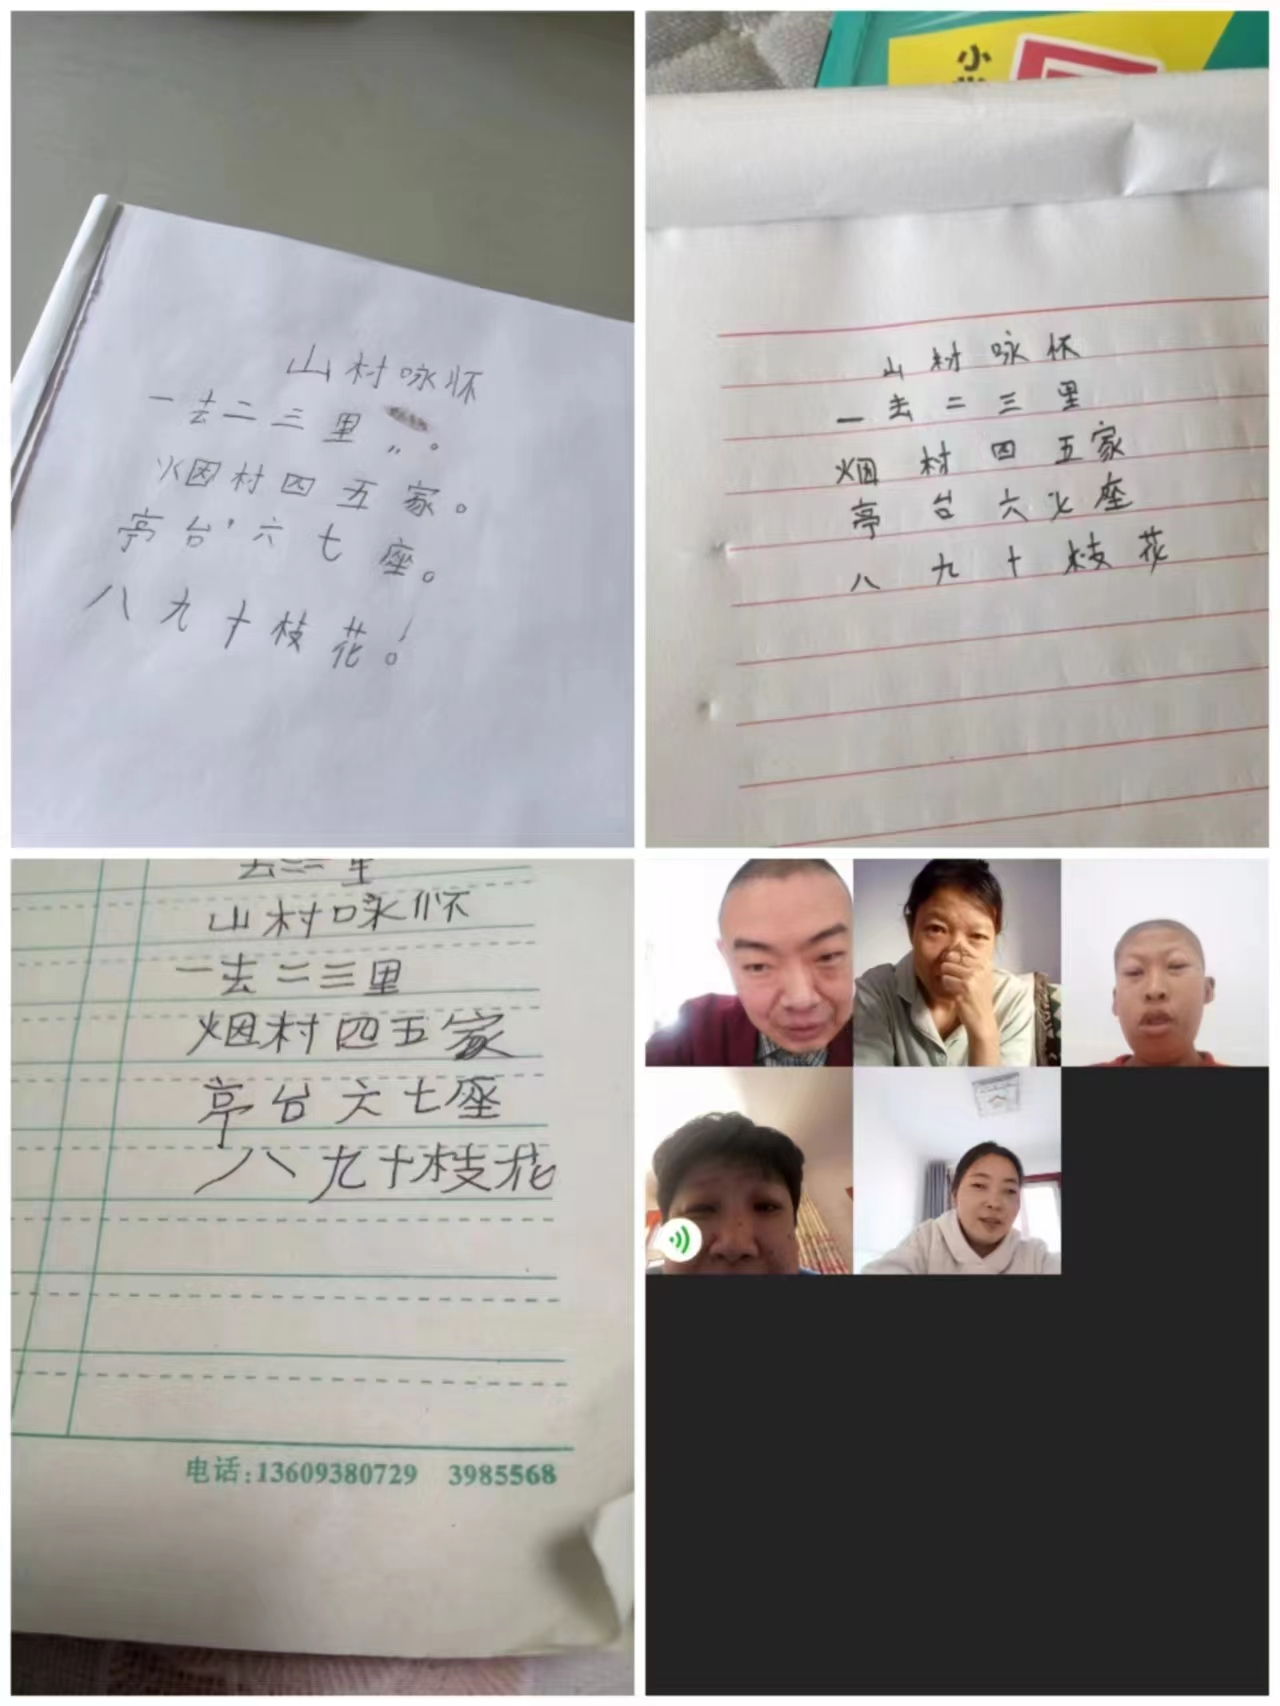 山村咏怀
一去二三里„。
烟村四五家。
亭台,六七座。
八九十枝花!。
小
山村咏怀
一去二三里
烟村四五家
亭台六七座
八九十枝花
去二三里
山村咏怀
一去二三里
烟村四五家
亭台六七座
八九十枝花
电话:13609380729 3985568